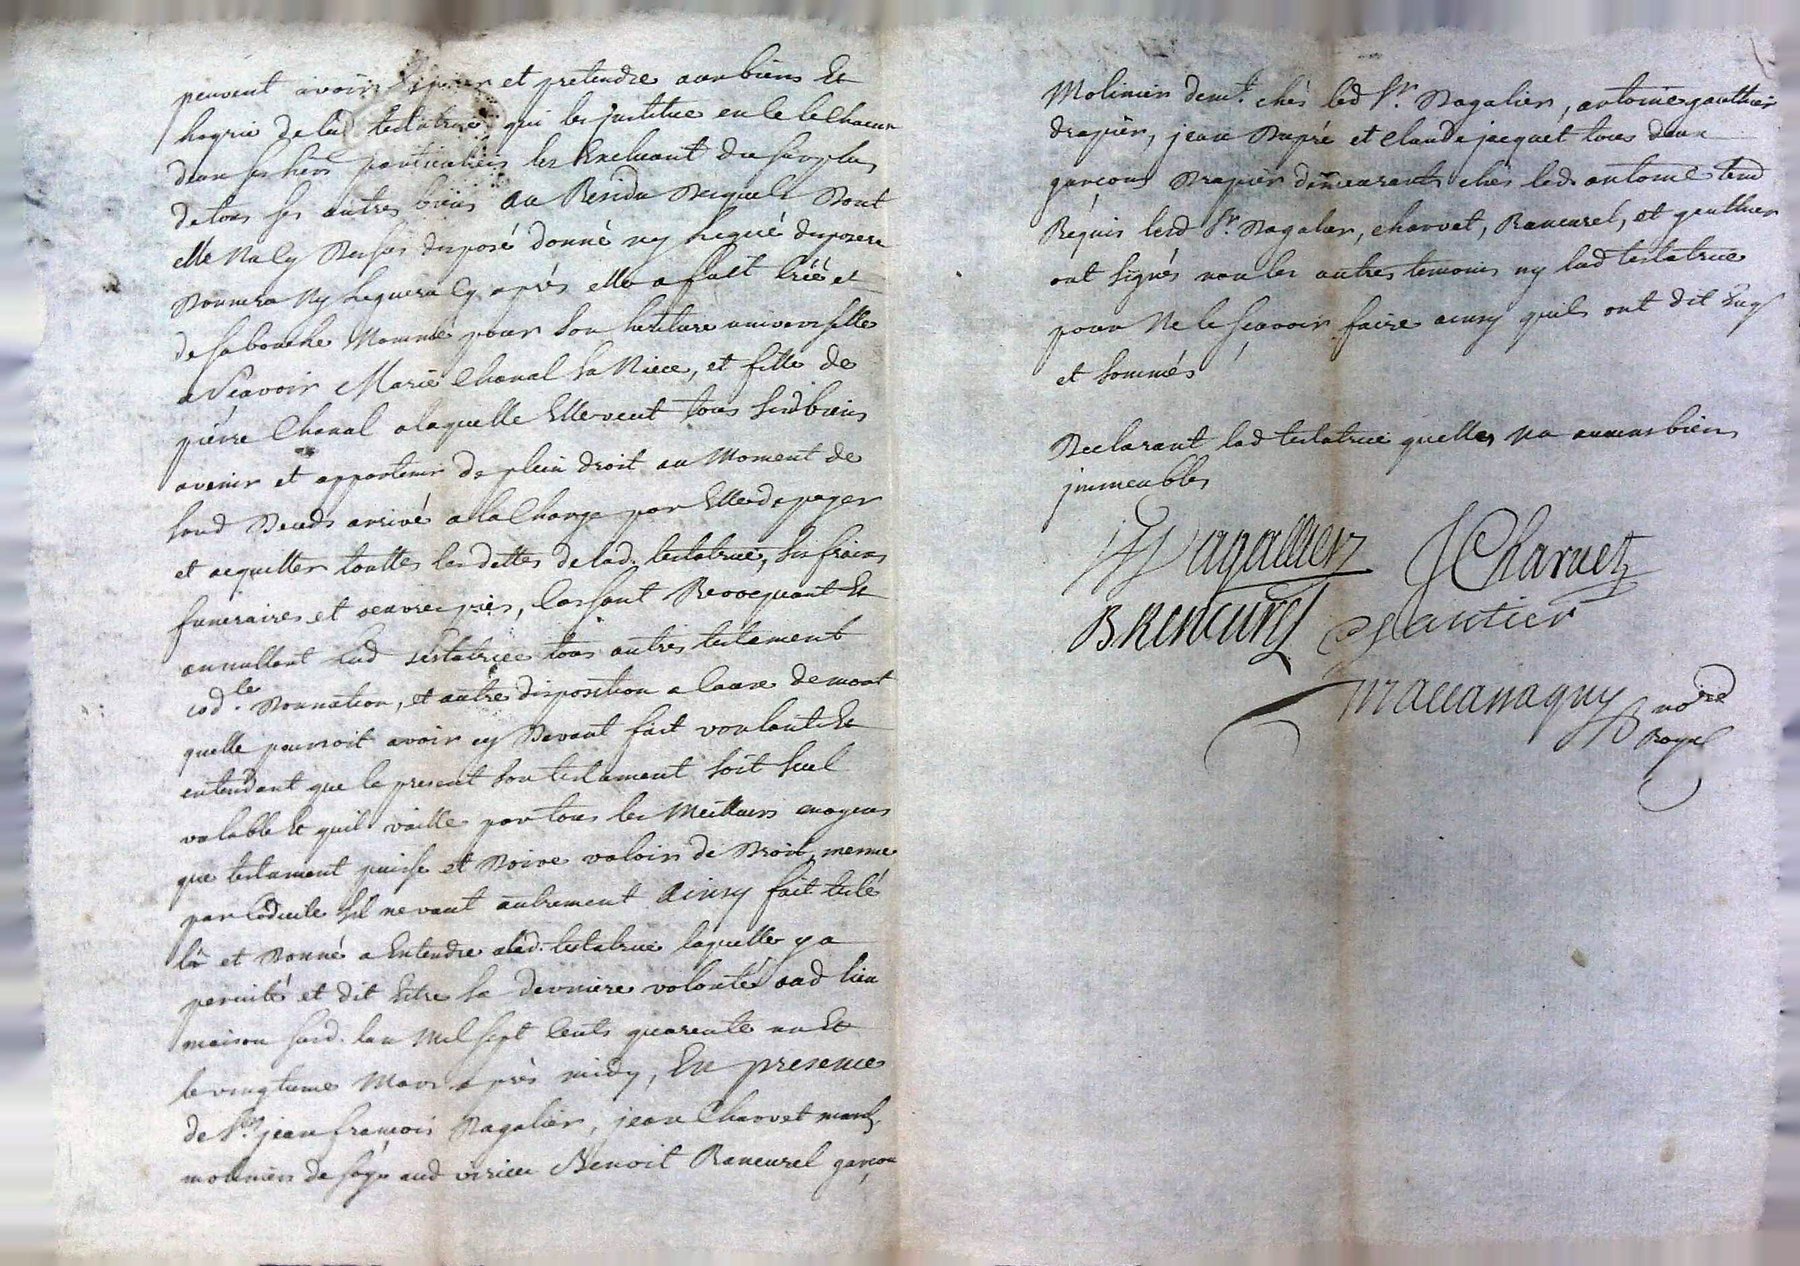 peuvent avoir et pretendre aux biens Et
hoyrie de lad testatrice qui les jnstitue en ce le Chacun
deux ses hers particuliers les Excluant du surplus
de tous ses autres biens au Residu Desquels Dont
elle Na cy Dessus disposé donné ny Legué disposera
Donnera Ny Leguera Cy après elle a fait Créé et
de sa bouche Nommé pour Son heritiere universelle
a Scavoir Marie Chanal sa Niece, et fille de
pierre Chanal a laquelle Elle veut tous sesd biens
avenir et appartenir de plein droit au Moment de
sond Deceds arrivé a la Charge par Elle de payer
et acquitter touttes les dettes de lad. testatrice, ses frais
funeraires et oeuvres pies, Cassant Revocquant Et
annullant Lad testatrice tous autres testament
cod.le Donnation, et autre disposition a Cause de mort
quelle pourroit avoir cy Devant fait voulant Et
entendant que le present Son testament soit seul
valable Et quil vaille par tous les Meilleurs moyens
que testament puisse et Doive valoir de Droit, meme
par Codicile Sil ne vaut autrement ainsy fait
lû et Donné a Entendre a lad. testatrice laquelle y a
persisté et dit Estre Sa derniere volonté aud lieu
maison susd. lan Mil sept Cents quarente un Et
le vingtieme Mars après midy, En presence
de Srs jean françois Dagalier, jean Charvet march.
moliniers de soye aud virieu Benoit Rancurel garçon
Molinier demt. chés led Sr. Dagalier, antoine gauthier
drapier, jean Dupré et Claude jacquet tous deux
garçons Drapier demeurants chés led. antoine
Réquis lesd Sr. Dagalier, Charvet, Rancurel, et gauthier
ont signés non les autres temoins ny lad testatrice
pour Ne le Scavoir faire ainsy quils ont dit Enqs
et sommés
Declarant lad testatrice quelle Na aucuns biens
jmmeubles
Dagallier J Charuet
B Rencurel gautier
Maccanaguy nore
Royal